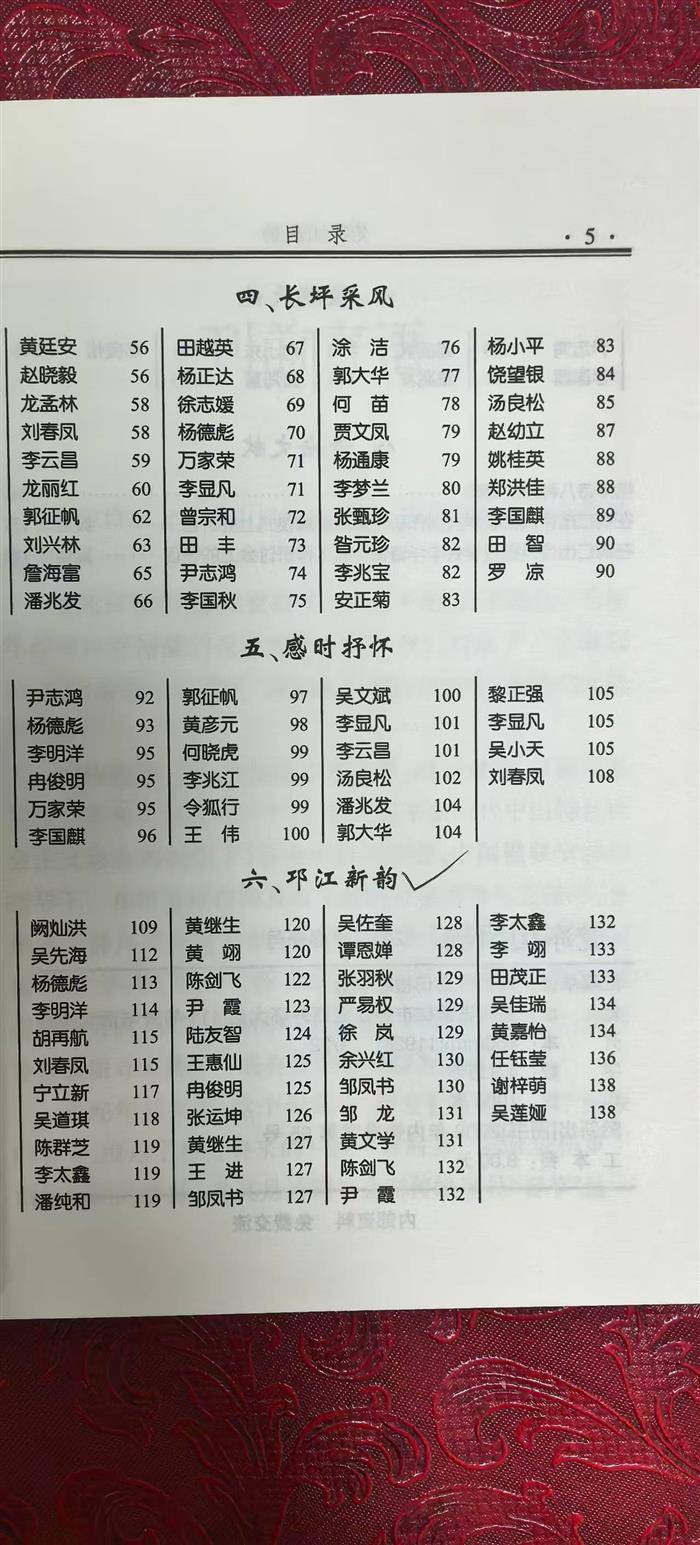 目 录
· 5 ·
四、长坪采风
黄廷安 56 田越英 67 涂洁 76 杨小平 83
赵晓毅 56 杨正达 68 郭大华 77 饶望银 84
龙孟林 58 徐志媛 69 何苗 78 汤良松 85
刘春凤 58 杨德彪 70 贾文凤 79 赵幼立 87
李云昌 59 万家荣 71 杨通康 79 姚桂英 88
龙丽红 60 李显凡 71 李梦兰 80 郑洪佳 88
郭征帆 62 曾宗和 72 张甄珍 81 李国麒 89
刘兴林 63 田丰 73 昝元珍 82 田智 90
詹海富 65 尹志鸿 74 李兆宝 82 罗凉 90
潘兆发 66 李国秋 75 安正菊 83
五、感时抒怀
尹志鸿 92 郭征帆 97 吴文斌 100 黎正强 105
杨德彪 93 黄彦元 98 李显凡 101 李显凡 105
李明洋 95 何晓虎 99 李云昌 101 吴小天 105
冉俊明 95 李兆江 99 汤良松 102 刘春凤 108
万家荣 95 令狐行 99 潘兆发 104
李国麒 96 王伟 100 郭大华 104
六、邛江新韵
阙灿洪 109 黄继生 120 吴佐奎 128 李太鑫 132
吴先海 112 黄翊 120 谭恩婵 128 李翊 133
杨德彪 113 陈剑飞 122 张羽秋 129 田茂正 133
李明洋 114 尹霞 123 严易权 129 吴佳瑞 134
胡再航 115 陆友智 124 徐岚 129 黄嘉怡 134
刘春凤 115 王惠仙 125 余兴红 130 任钰莹 136
宁立新 117 冉俊明 125 邹凤书 130 谢梓萌 138
吴道琪 118 张运坤 126 邹龙 131 吴莲娅 138
陈群芝 119 黄继生 127 黄文学 131
李太鑫 119 王进 127 陈剑飞 132
潘纯和 119 邹凤书 127 尹霞 132